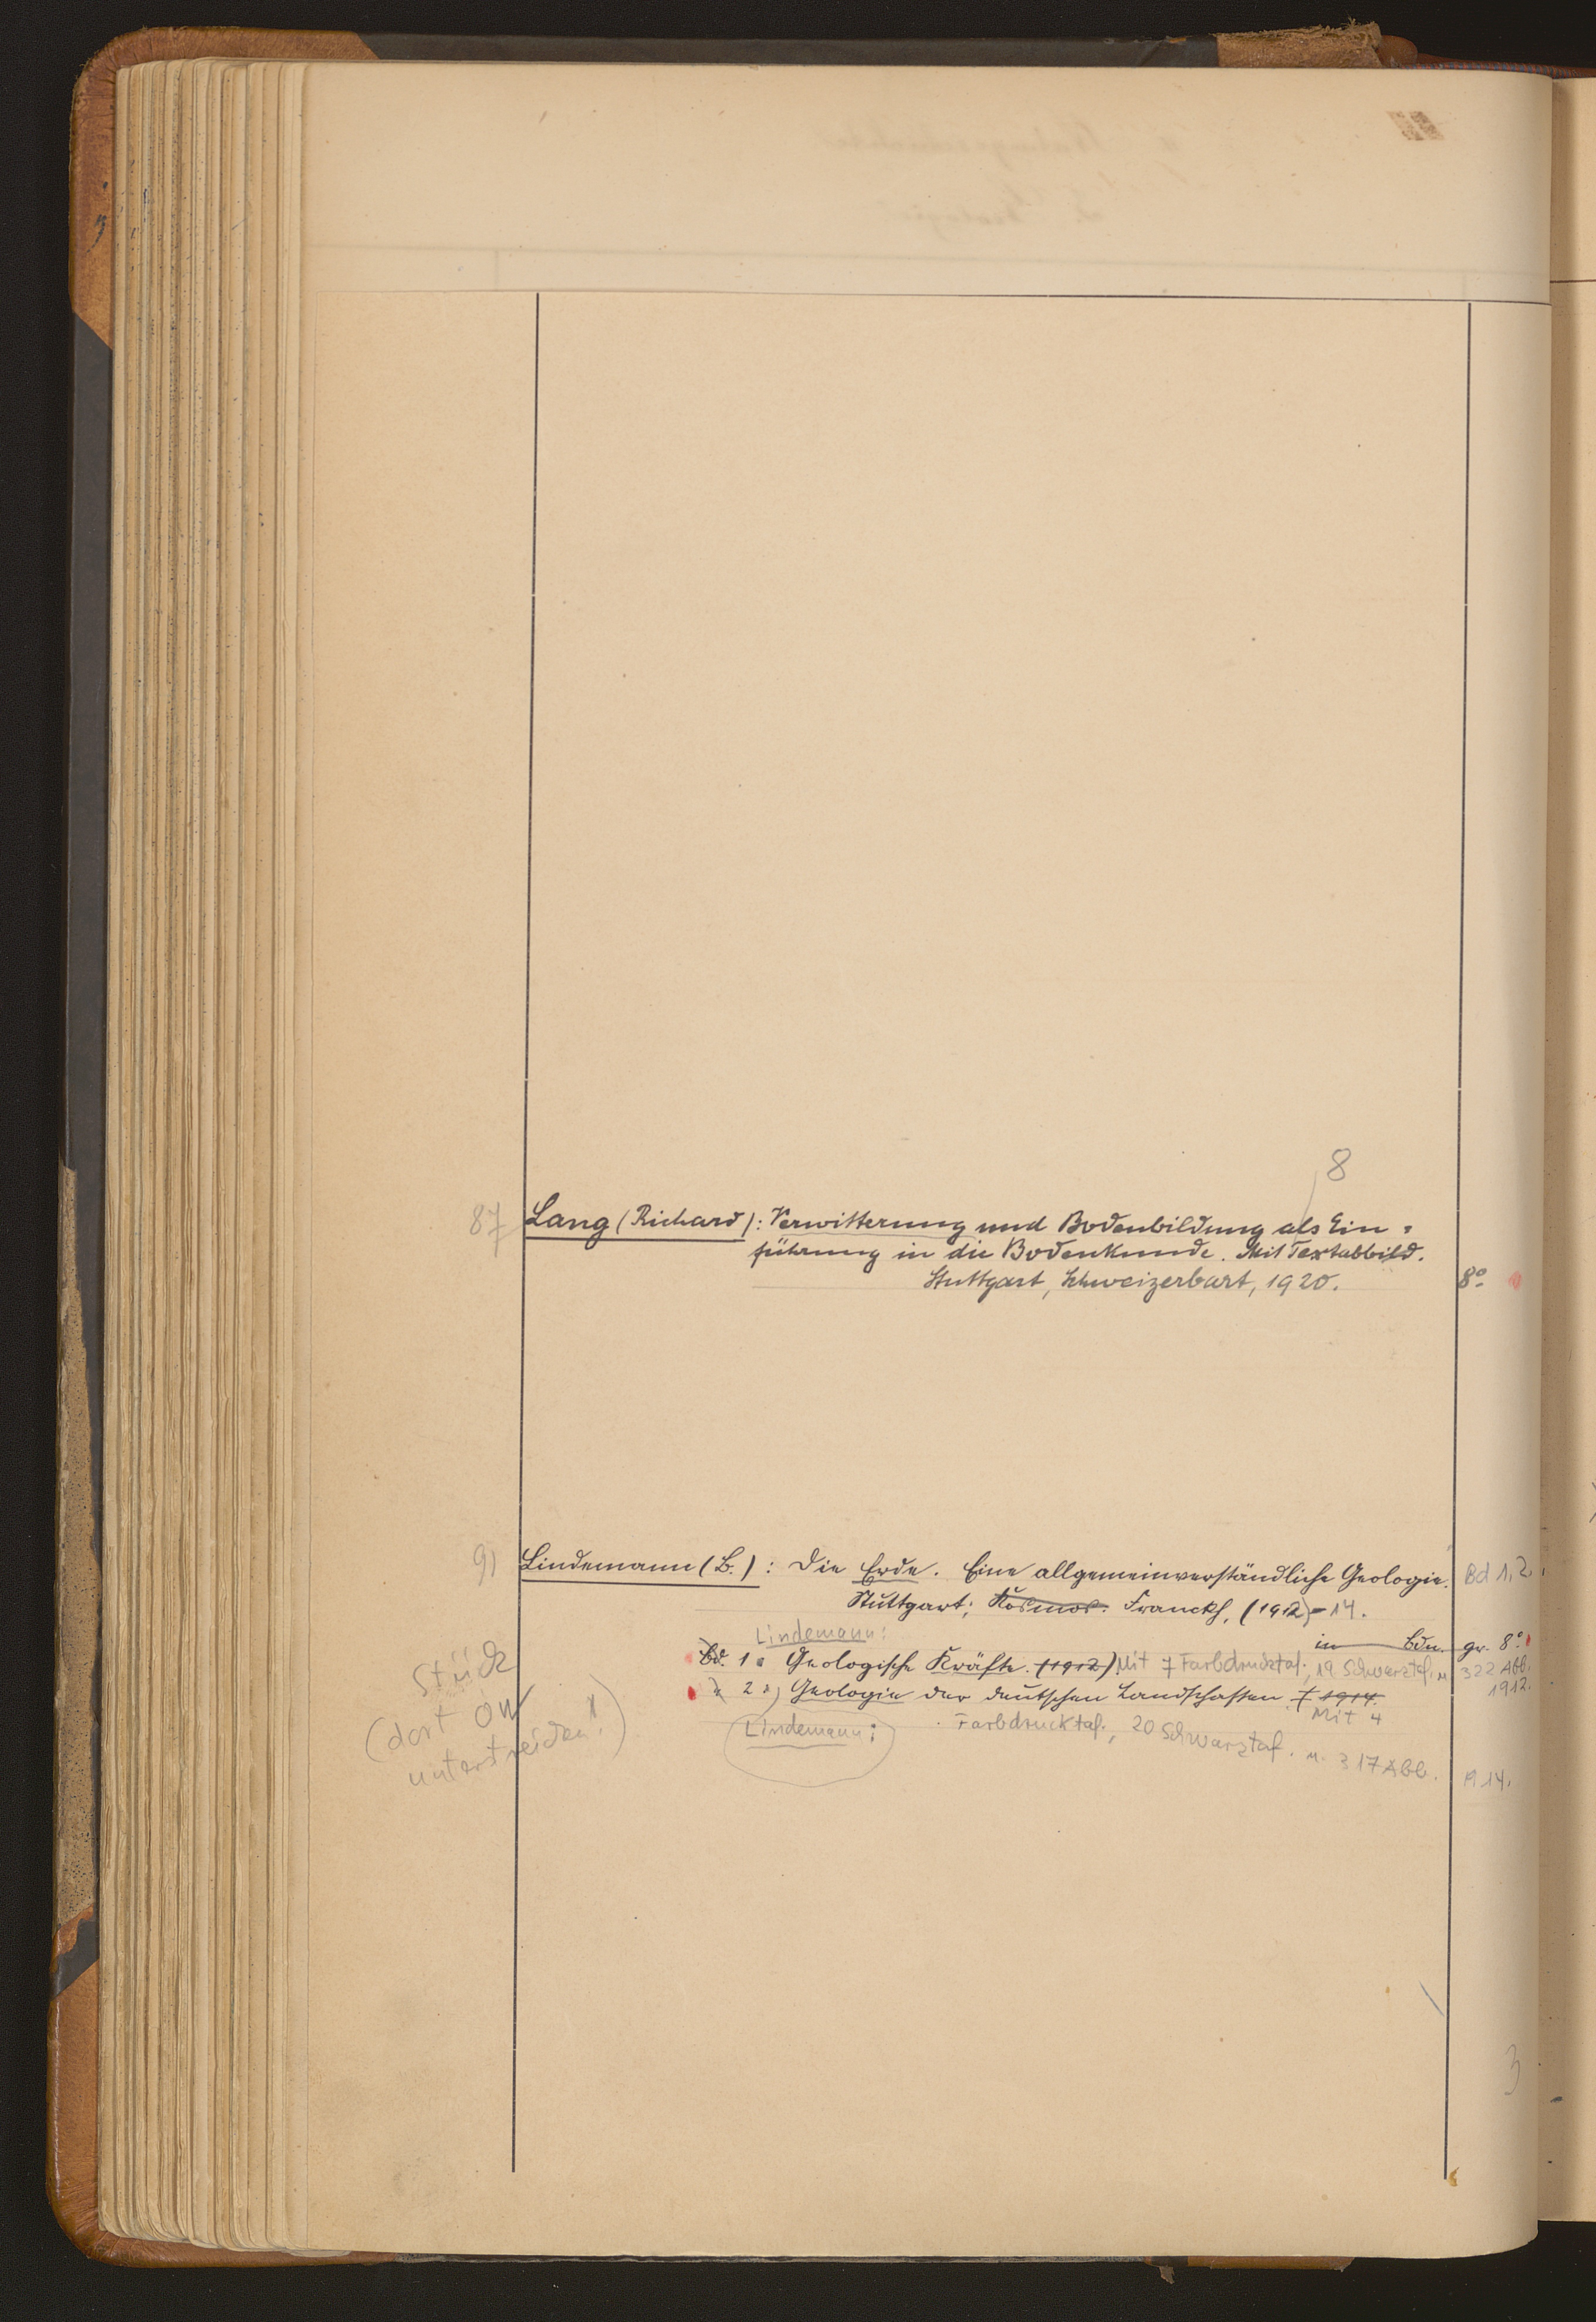 8
87 Lang (Richard): Verwitterung und Bodenbildung als Ein-
führung in die Bodenkunde. Mit Textabbild.
Stuttgart, Schweizerbart, 1920. 8°
91 Lindemann (B.): Die Erde. Eine allgemeinverständliche Geologie. Bd 1.2.
Stuttgart; Kosmos. Franckh, (1912)-14.
Lindemann: in Bdn. gr. 8°
Bd. 1: Geologische Kräfte. (1912) Mit 7 Farbdrucktaf., 19 Schwarztaf. u. 322 Abb.
1912.
2: Geologie der deutschen Landschaften. 1914. Mit 4
Lindemann: Farbdrucktaf., 20 Schwarztaf. u. 317 Abb. 1914.
Stück
(dort
unterstreichen!)
3